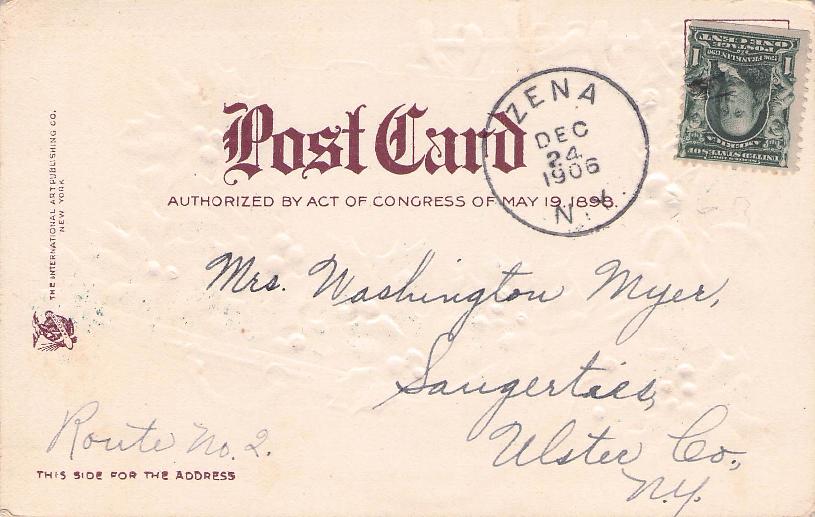 THE INTERNATIONAL ART PUBLISHING CO.
NEW YORK
Post Card
AUTHORIZED BY ACT OF CONGRESS OF MAY 19, 1898.
ZENA
DEC
24
1906
N.Y.
UNITED STATES OF
AMERICA
1 1
FRANKLIN
POSTAGE
ONE CENT
Mrs. Washington Myer,
Saugerties,
Ulster Co.,
N.Y.
Route No. 2.
THIS SIDE FOR THE ADDRESS